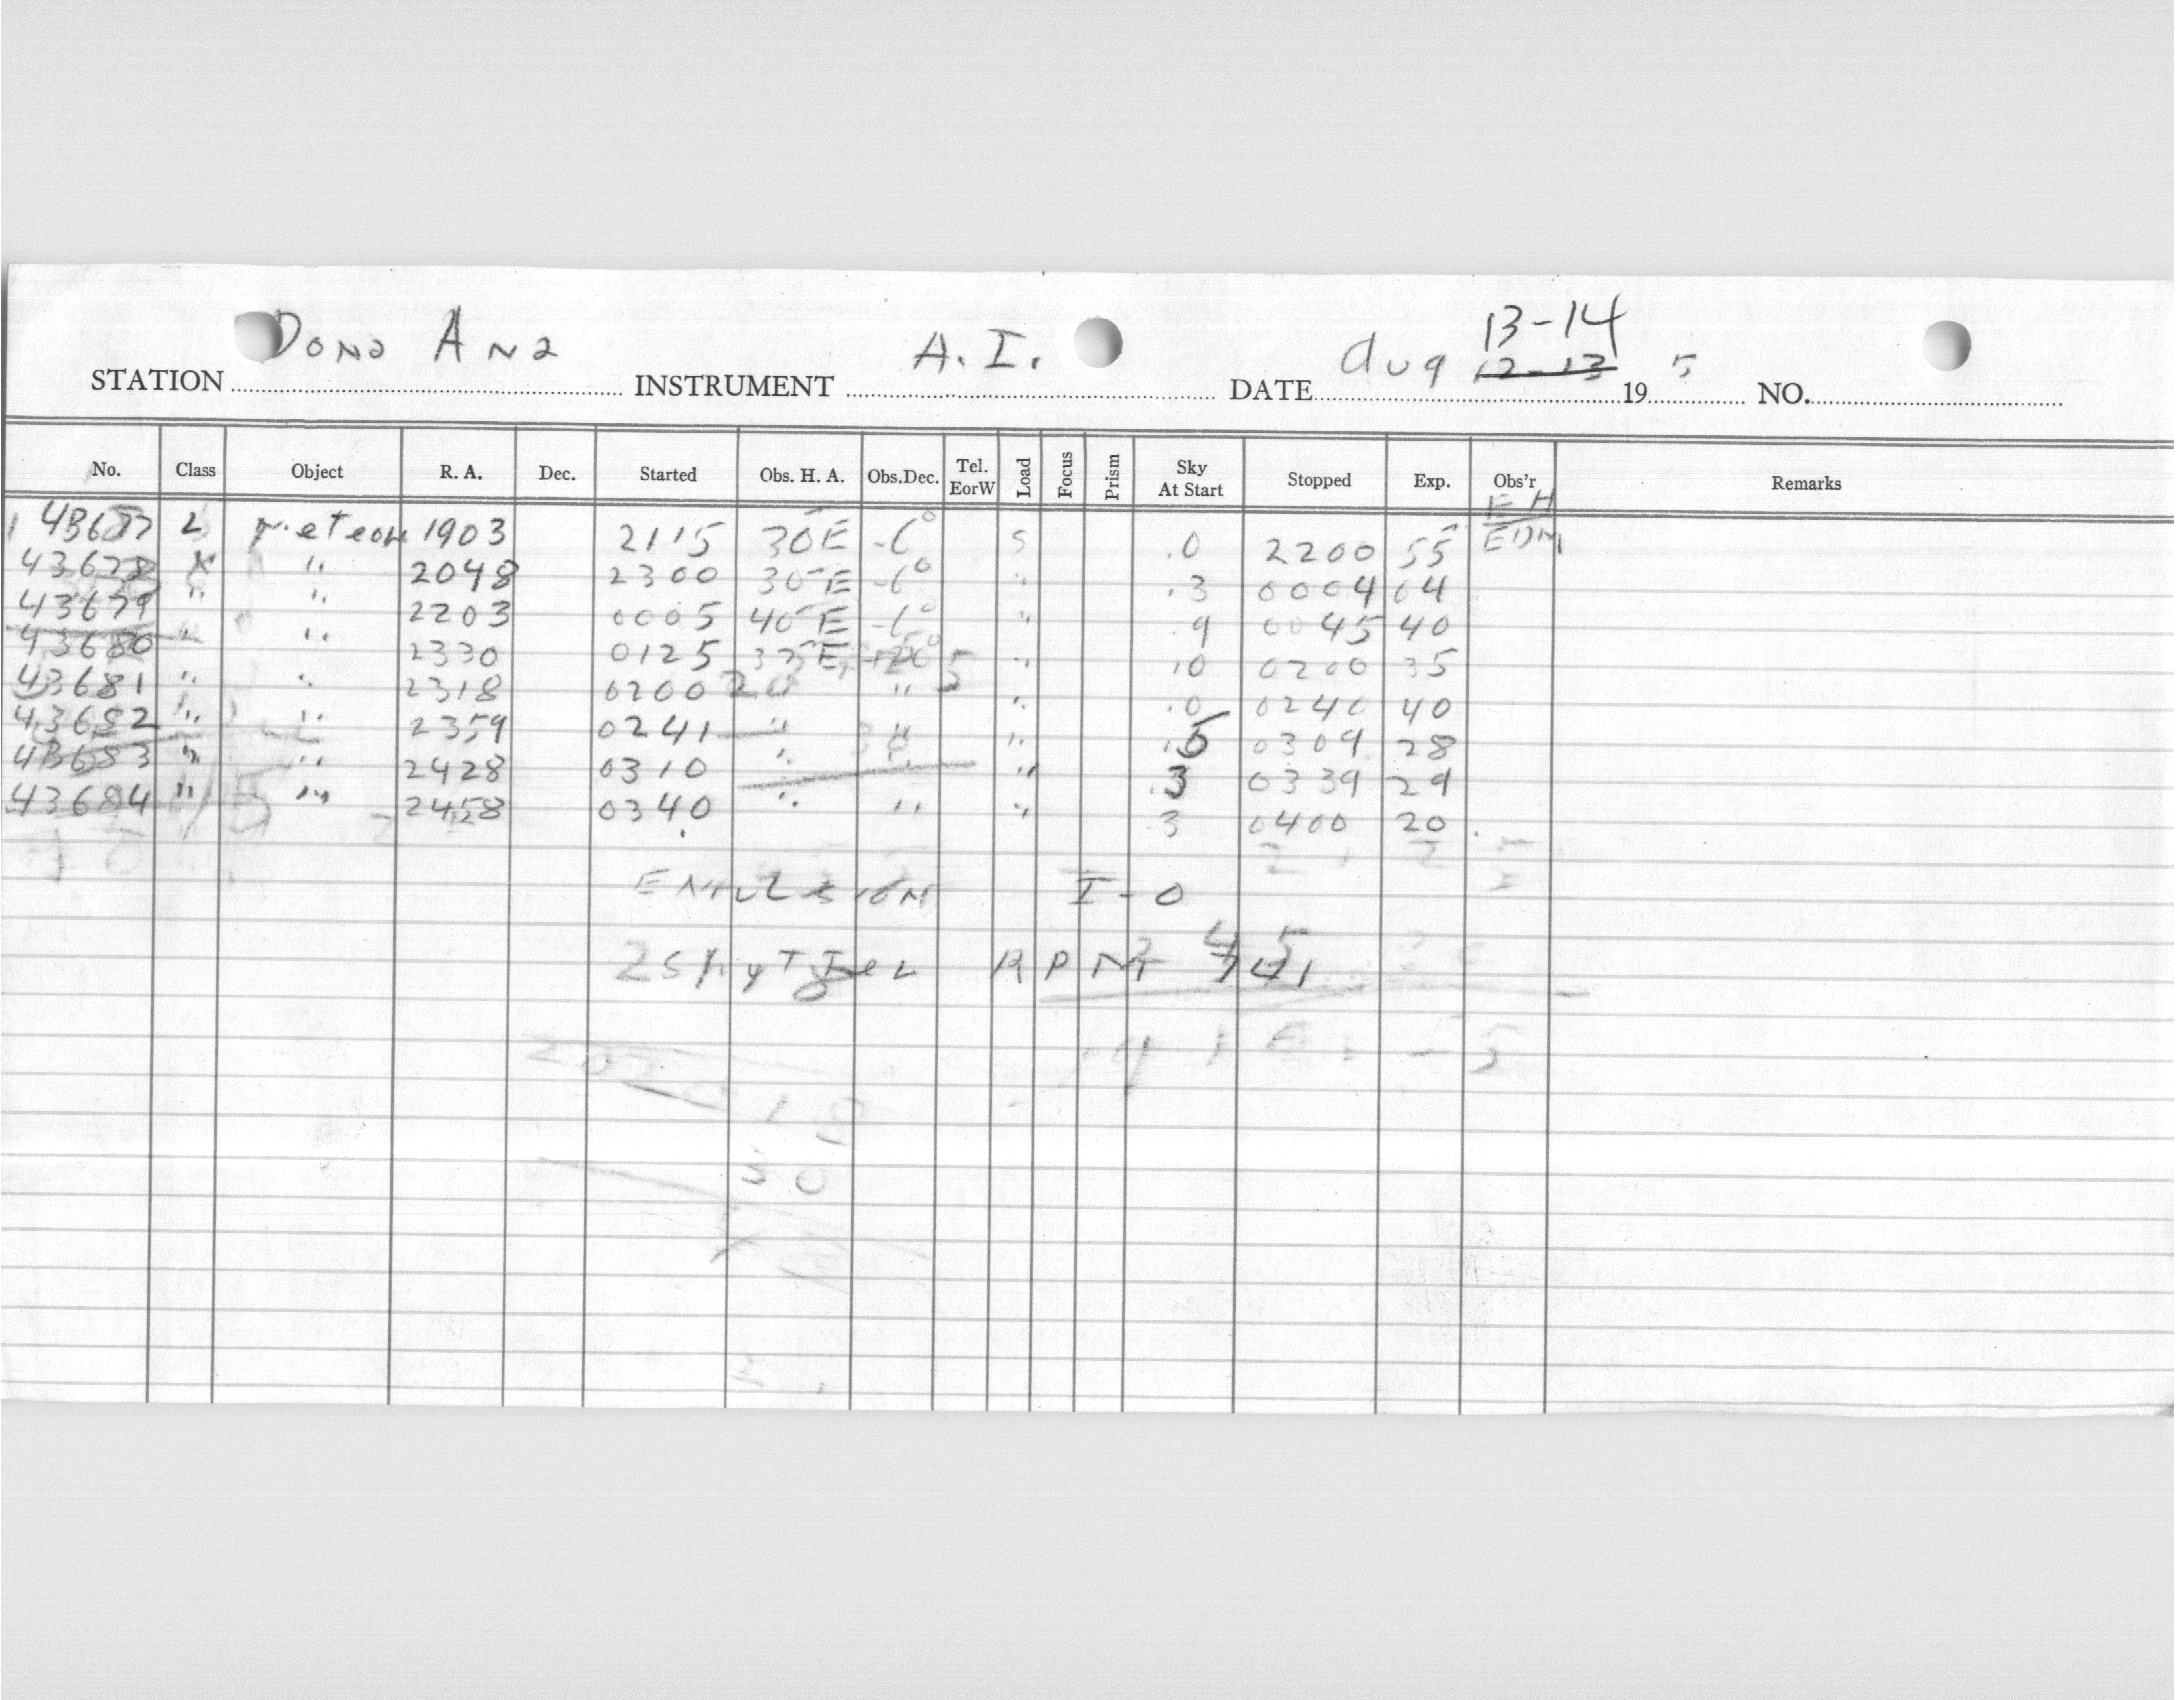 13-14
STATION Dona Ana INSTRUMENT A. I. DATE Aug 12-13 19 5 NO.
No. Class Object R. A. Dec. Started Obs. H. A. Obs.Dec. Tel. EorW Load Focus Prism Sky At Start Stopped Exp. Obs'r Remarks
EH
L Meteor 1903 2115 30 E -6° S .0 2200 55 EDM
43678 " 2048 2300 30 E -6° " .3 0004 64
43679 " " 2203 0005 40 E -6° " .9 0045 40
43680 " " 2330 0125 " .0 0200 35
43681 " " 2318 0200 20 " " .0 0240 40
43682 " " 2359 0241 " " " .5 0309 28
43683 " " 2428 0310 " " " .3 0339 29
43684 " " 2458 0340 " " " 3 0400 20
EMULSION I-O